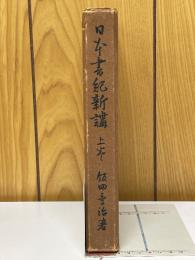 日本書紀新講 上巻 飯田季治著